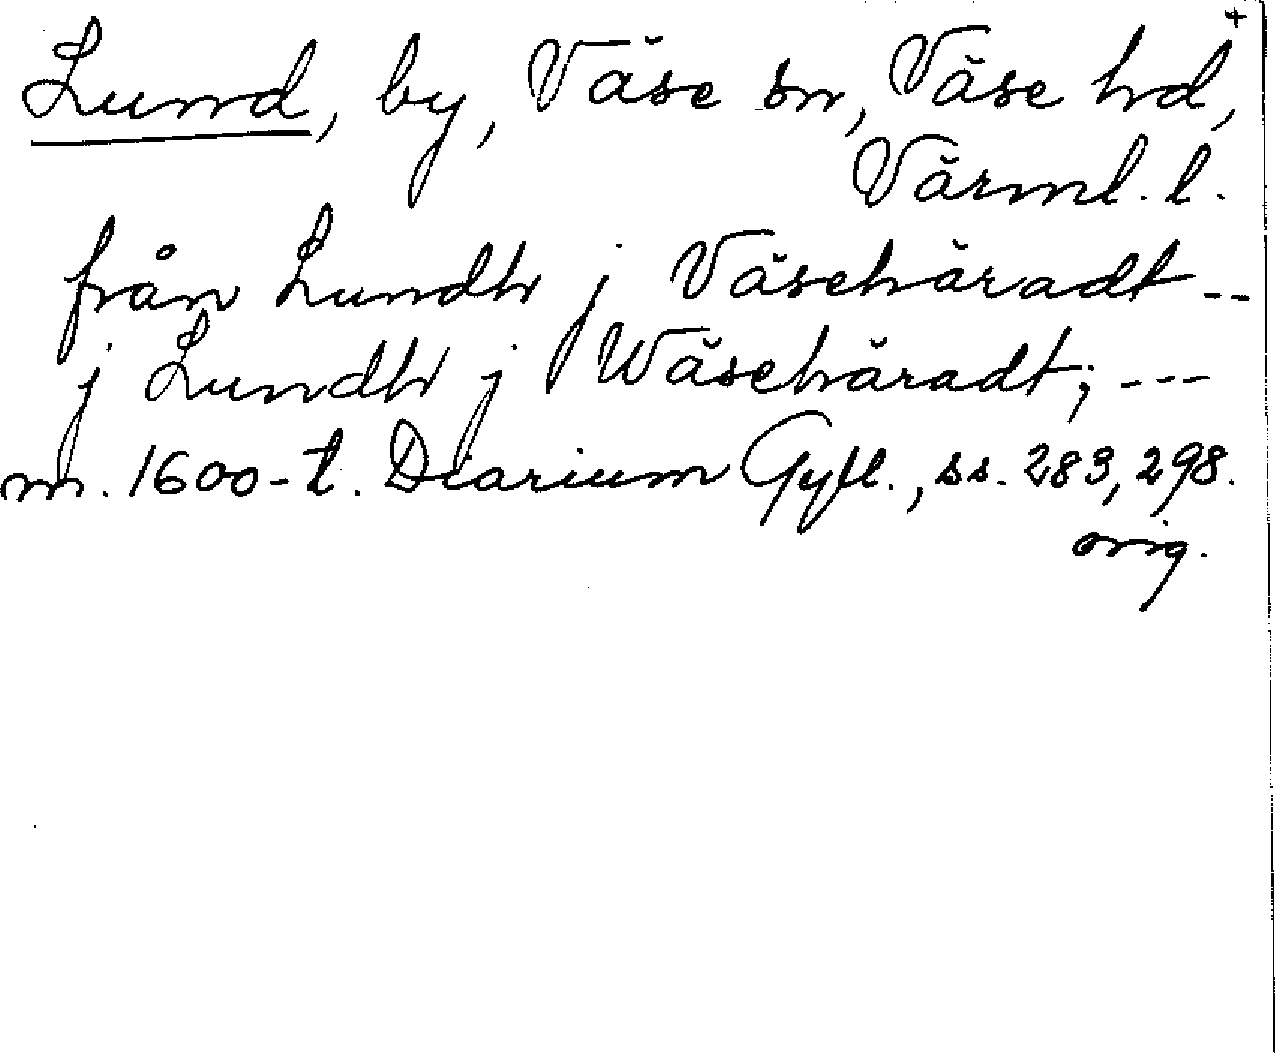 +
Lund, by, Väse sn, Väse hd,
Värml. l.
från Lundh j Väsehäradt --
j Lundh j Wäsehäradt; ---
m. 1600-t. Diarium Gyll., ss. 283, 298.
orig.